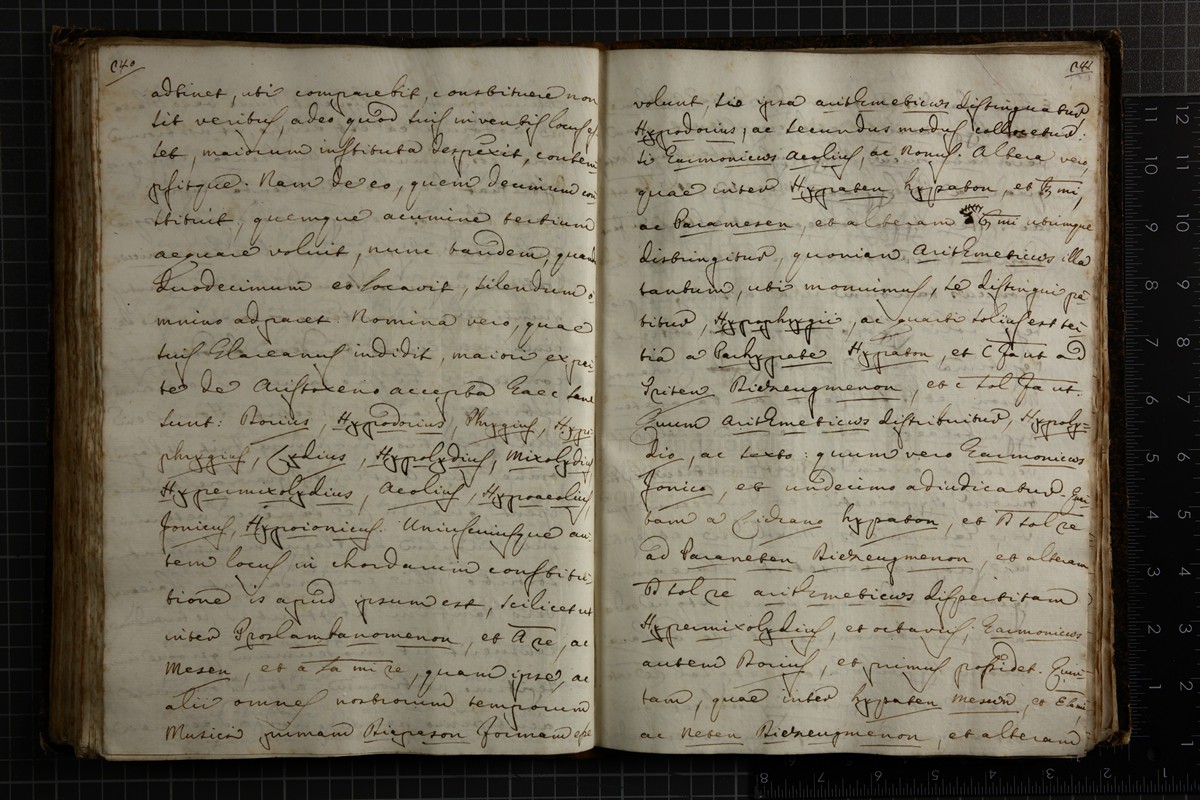 640
adtinet, ubi comparebit, constituere non
sit veritus, adeo quod suis inventis locus es
set, maiorum instituta despexit, contem
psitque. Nam de eo, quem decimum con
stituit, quemque acumine tertium
aequare voluit, nunc tandem, quam
duodecimum eo locavit, silendum o
mnino adparet. Nomina vero, quae
suis Glareanus indidit, maiori ex par
te de Aristoxeno accepta haec sane
sunt: Dorius, Hypodorius, Phrygius, Hypo
phrygius, Lydius, Hypolydius, Mixolydius
Hypermixolydius, Aeolius, Hypoaeolius
Jonicus, Hypoionicus. Uniuscuiusque au
tem locus in chordarum constitu
tione is apud ipsum est, scilicet ut
inter Proslambanomenon, et A re, ac
Mesen, et a la mi re, quam ipse, ac
alii omnes nostrorum temporum
Musici primam Diapason formam esse
641
volunt, sic ipsa arithmeticus distinguatur,
Hypodorius, ac secundus modus collocetur:
si Harmonicus Aeolius, ac Nonus. Altera vero,
quae inter Hypaten hypaton, et ♮ mi,
ac Paramesen, et alteram ♮ mi utrimque
distringitur, quoniam Arithmeticus illa
tantum, ubi monuimus, se distingui pa
titur, Hypophrygii, ac quarti solius est ter
tia a Parhypate Hypaton, et C fa ut ad
Triten Diezeugmenon, et c sol fa ut.
Quum Arithmeticus distribuitur, Hypoly=
dio, ac sexto: quum vero Harmonicus
Jonico, et undecimo adiudicatur. Quar
tam a Lidrano hypaton, et D sol re
ad Paraneten Diezeugmenon, et alteram
D sol re arithmeticus dispertitam
Hypermixolydius, et octavus, Harmonicus
autem Dorius, et primus possidet. Quin
tam, quae inter hypaten meson, et E la mi,
ac Neten Diezeugmenon, et alteram